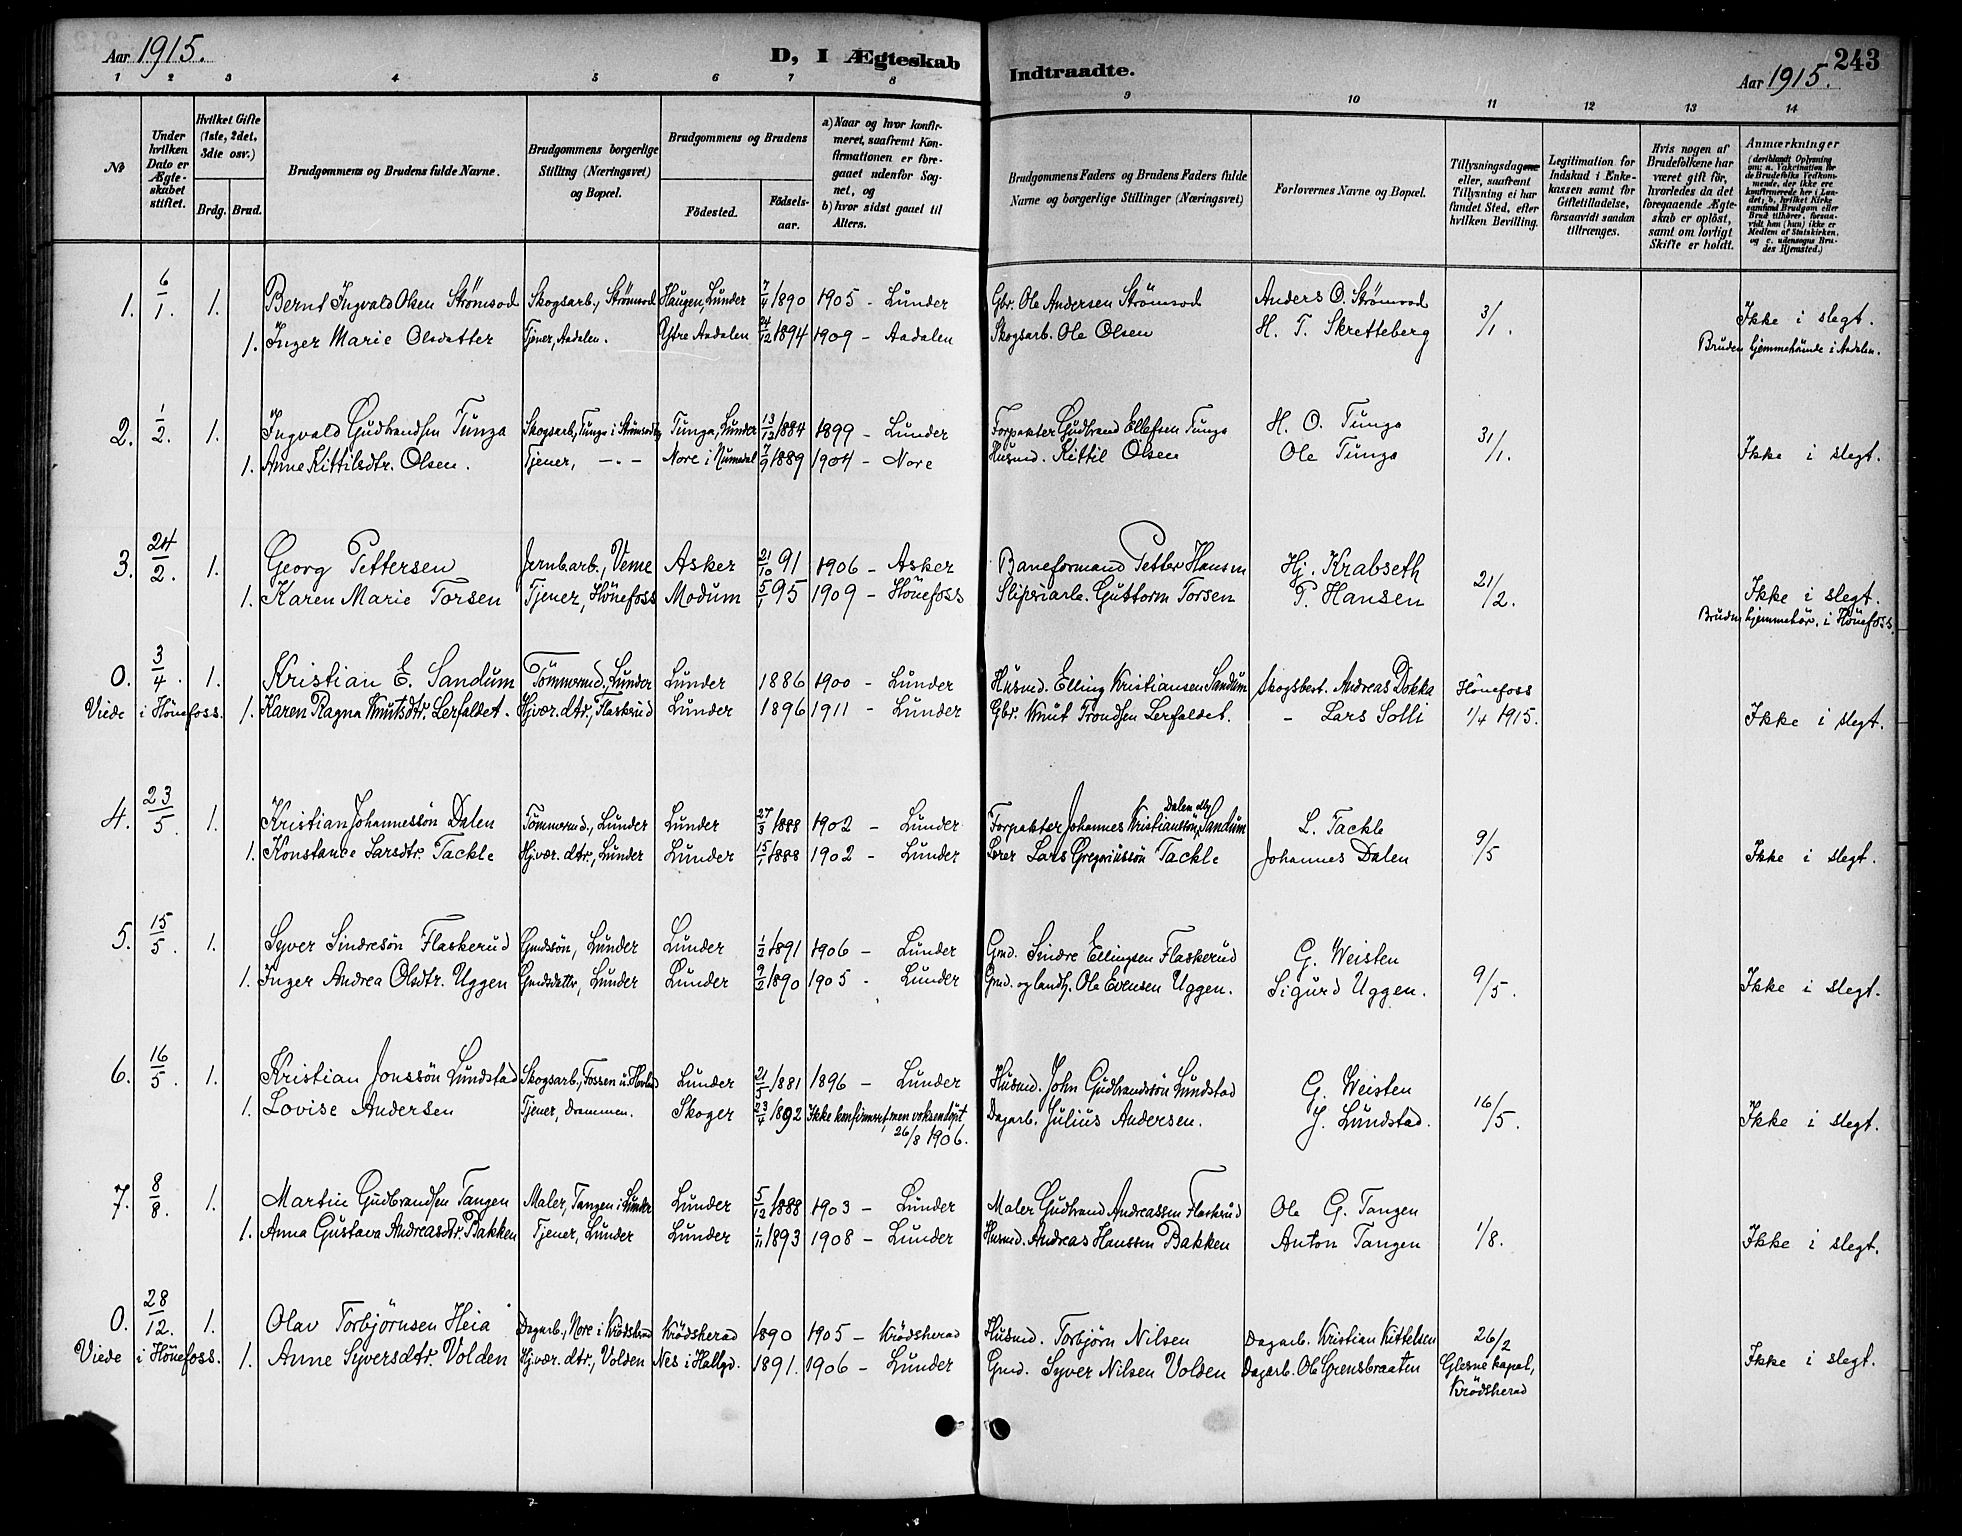 Aar 1915.
D, I Ægteskab
Indtraadte.
Aar 1915.
243
1 2 3 4 5 6 7 8 9 10 11 12 13 14
No
Under hvilken Dato er Ægteskabet stiftet.
Hvilket Gifte (1ste, 2det, 3die osv.)
Brdg. Brud.
Brudgommens og Brudens fulde Navne.
Brudgommens borgerlige Stilling (Næringsvei) og Bopæl.
Brudgommens og Brudens
Födested.
Födselsaar.
a) Naar og hvor konfirmeret, saafremt Konfirmationen er foregaaet udenfor Sognet, og
b) hvor sidst gaaet til Alters.
Brudgommens Faders og Brudens Faders fulde Navne og borgerlige Stillinger (Næringsvei)
Forlovernes Navne og Bopæl.
Tillysningsdagene eller, saafremt Tillysning ei har fundet Sted, efter hvilken Bevilling.
Legitimation for Indskud i Enkekassen samt for Giftetilladelse, forsaavidt saadan tiltrænges.
Hvis nogen af Brudefolkene har været gift før, hvorledes da det foregaaende Ægteskab er opløst, samt om lovligt Skifte er holdt.
Anmærkninger
(deriblandt Oplysning om: a. Vakcination for de Brudefolks Vedkommende, der ikke ere konfirmerede her i Landet; b, hvilket Kirkesamfund Brudgom eller Brud tilhører, forsaavidt han (hun) ikke er Medlem af Statskirken, og c. udensogns Brudes Hjemsted.)
1. 6/1. 1. Bernt Ingvald Olsen Strømsod Skogsarb., Strømsod Haugen, Lunder 7/4 1890 1905 - Lunder Gbr. Ole Andersen Strømsod Anders O. Strømsod 3/1. Ikke i slegt.
1. Inger Marie Olsdatter Tjener, Aadalen. Ytre Aadalen 24/12 1894 1909 - Aadalen Skogsarb. Ole Olsen H. T. Skretteberg Bruden hjemmehørende i Aadalen.
2. 1/2. 1. Ingvald Gudbrandsen Tunga Skogsarb, Tunga i Strømsodbg Tunga, Lunder 13/12 1884 1899 - Lunder Forpakter Gudbrand Ellefsen Tunga H. O. Tunga 31/1.
1. Anne Kittilsdtr. Olsen. Tjener, -.- Nore i Numedal 7/9 1889 1904 - Nore Husmd. Kittil Olsen Ole Tunga Ikke i slegt.
3. 24/2. 1. Georg Pettersen Jernb.arb., Veme Asker 21/10 91 1906 - Asker Baneformand Petter Hansen Hj. Krabseth 21/2.
1. Karen Marie Torsen Tjener, Hönefoss Modum 5/1 95 1909 - Hönefoss Sliperiarb. Guttorm Torsen P. Hansen Ikke i slegt.
Bruden hjemmehör. i Hönefoss.
0. 3/4. 1. Kristian E. Sandum Tömmermd., Lunder Lunder 1886 1900 - Lunder Husmd. Elling Kristiansen Sandum Skogsbest. Andreas Dokka Hönefoss
Viede i Hönefoss. 1. Karen Ragna Knutsdtr. Lerfaldet. Hjvær. dtr., Flaskrud Lunder 1896 1911 - Lunder Gbr. Knut Trondsen Lerfaldet. - Lars Solli 1/4 1915. Ikke i slegt.
4. 23/5. 1. Kristian Johannessön Dalen Tömmermd., Lunder Lunder 27/3 1888 1902 - Lunder Forpakter Johannes Kristianssön Dalen elly Sandum L. Tackle 9/5
1. Konstance Larsdtr. Tackle Hjvær. dtr., Lunder Lunder 15/1 1888 1902 - Lunder Lærer Lars Gregoriussön Tackle Johannes Dalen Ikke i slegt.
5. 15/5. 1. Syver Sindresön Flaskerud Gmdssön, Lunder Lunder 1/2 1891 1906 - Lunder Gmd. Sindre Ellingsen Flaskerud G. Weisten 9/5.
1. Inger Andrea Olsdtr. Uggen Gmdsdattr, Lunder Lunder 9/2 1890 1905 - Lunder Gmd. og landh. Ole Evensen Uggen. Sigurd Uggen. Ikke i slegt.
6. 16/5. 1. Kristian Jonssön Lundstad Skogsarb., Fossen u. Lunder 21/5 1881 1896 - Lunder Husmd. John Gudbrandssön Lundstad G. Weisten 16/5.
1. Lovise Andersen Tjener, Drammen. Skoger 23/4 1892 Ikke konfirmert, men voksendöpt 26/8 1906. Dagarb. Julius Andersen. J. Lundstad. Ikke i slegt.
7. 8/8. 1. Martin Gudbrandsen Tangen Maler, Tangen i Lunder Lunder 5/12 1888 1903 - Lunder Maler Gudbrand Andreassen Flaskrud Ole G. Tangen 1/8.
1. Anna Gustava Andreasdtr. Bakken Tjener, Lunder Lunder 1/11 1893 1908 - Lunder Husmd. Andreas Hanssen Bakken Anton Tangen Ikke i slegt.
0. 28/12. 1. Olav Torbjörnsen Heia Dagarb., Nore i Krödsherad Krödsherad 1890 1905 - Krödsherad Husmd. Torbjörn Nilsen Dagarb. Kristian Kittelsen 26/2
Viede i Hönefoss. 1. Anne Syversdtr. Volden Hjvær. dtr., Volden Nes i Hallgd. 1891. 1906 - Lunder Gmd. Syver Nilsen Volden Dagarb. Ole Grensbraaten Glesne kapel, Krödsherad Ikke i slegt.